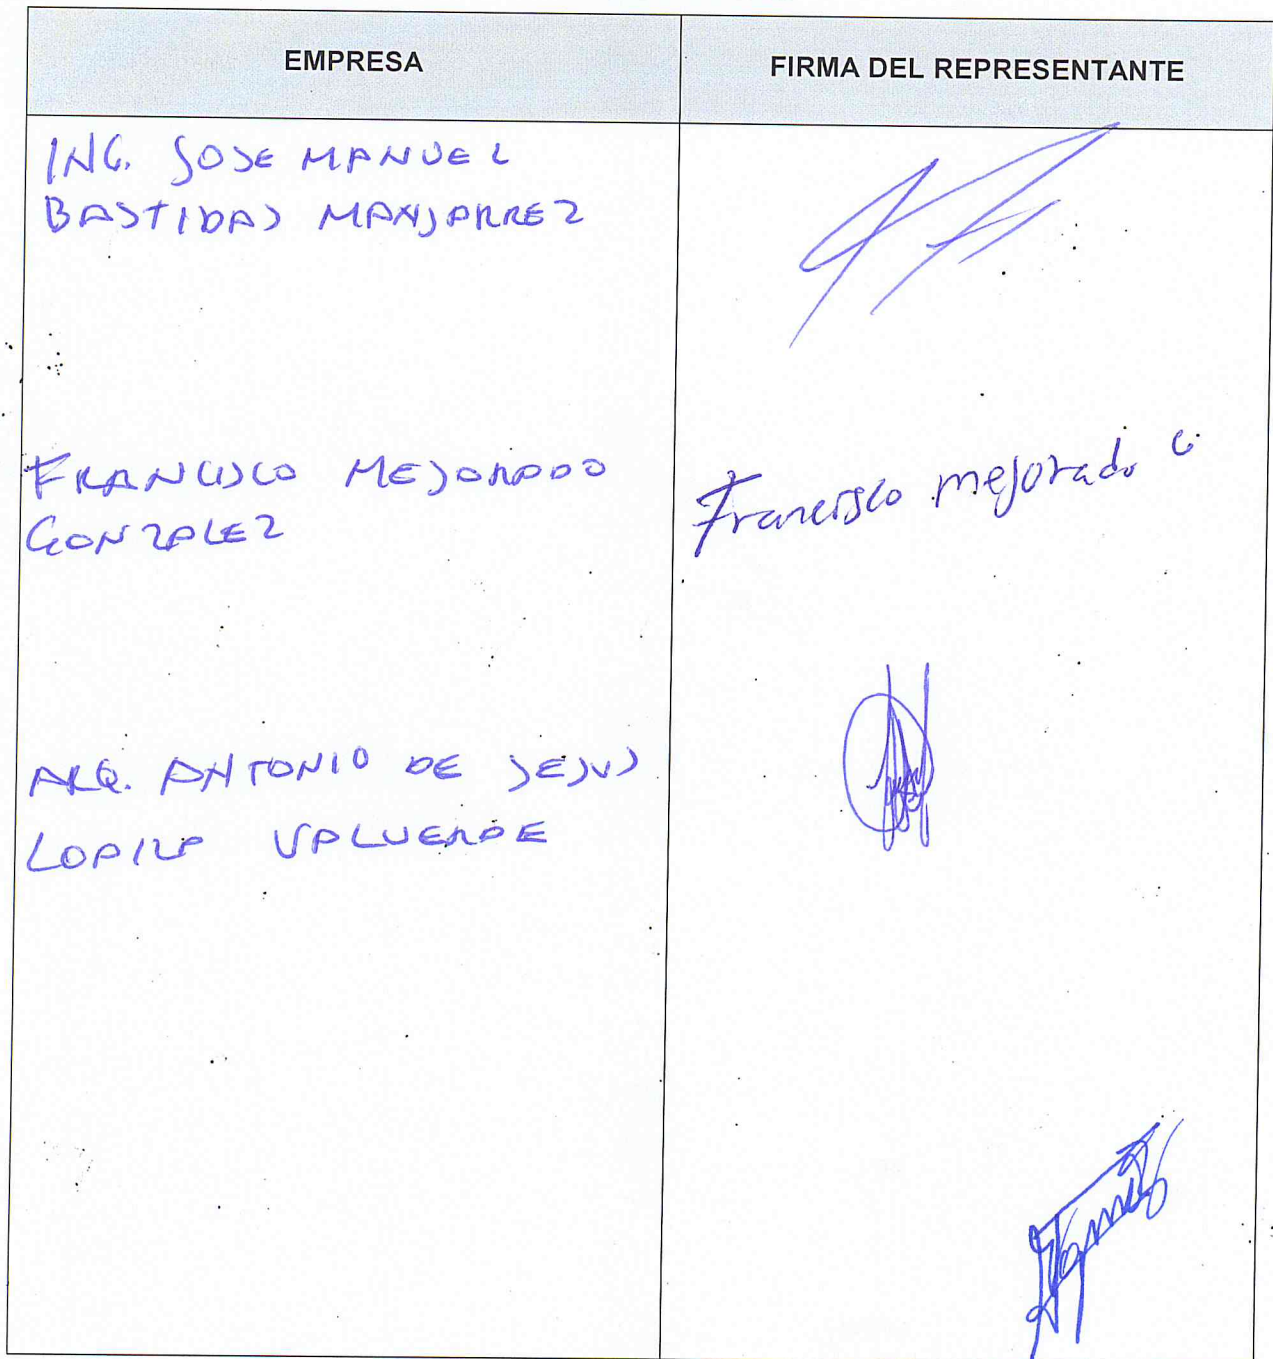 EMPRESA
FIRMA DEL REPRESENTANTE
ING. JOSE MANUEL
BASTIDAS MANJARREZ
FRANCISCO MEJORADO
GONZALEZ
Francisco mejorado G
ARQ. ANTONIO DE JESUS
VALVERDE